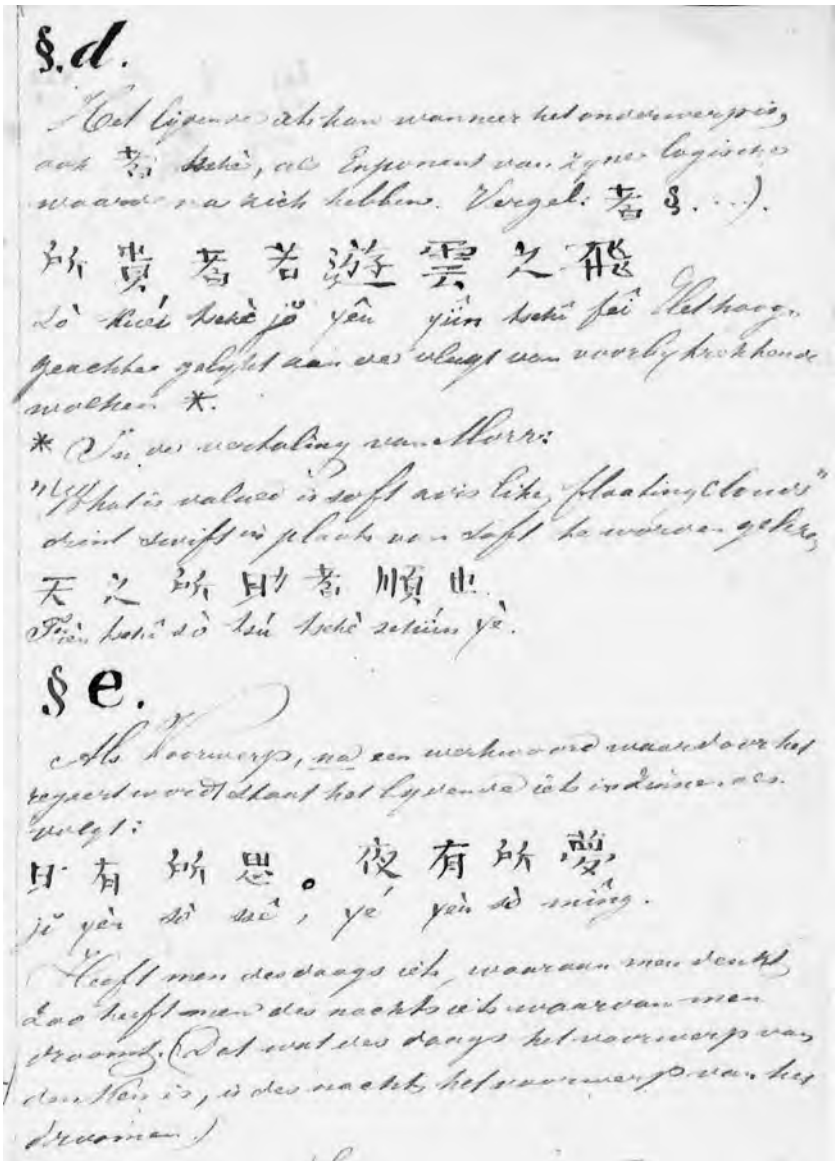 §.d.
Het lijdende iets kan wanneer het onderwerp is,
ook 者 tschè, als Exponent van zyne logische
waarde na zich hebben. Vergel: 者 §. ...).
所 貴 者 若 遊 雲 之 飛
sò kuéi tschè jŏ yêu yûn tschī fēi Het hoog-
geachte gelykt aan de vlugt van voorby trekkende
wolken *.
* In de vertaling van Morr:
"What is valued is soft as is like floating clouds"
dient swift in plaats van soft te worden
天 之 所 助 者 順 也
Tiēn tschī sò tsú tschè schún yè.
§ e.
Als Voorwerp, na een werkwoord waardoor het
regeerd word staat het lydende iets in als
volgt:
日 有 所 思 。 夜 有 所 夢
jĭ yèu sò ssē, yé yèu sò mûng.
Heeft men des daags iets, waaraan men denkt,
zoo heeft men des nachts iets waarvan men
droomt. (Dat wat des daags het voorwerp van
denken is, is des nachts het voorwerp van het
droomen.)